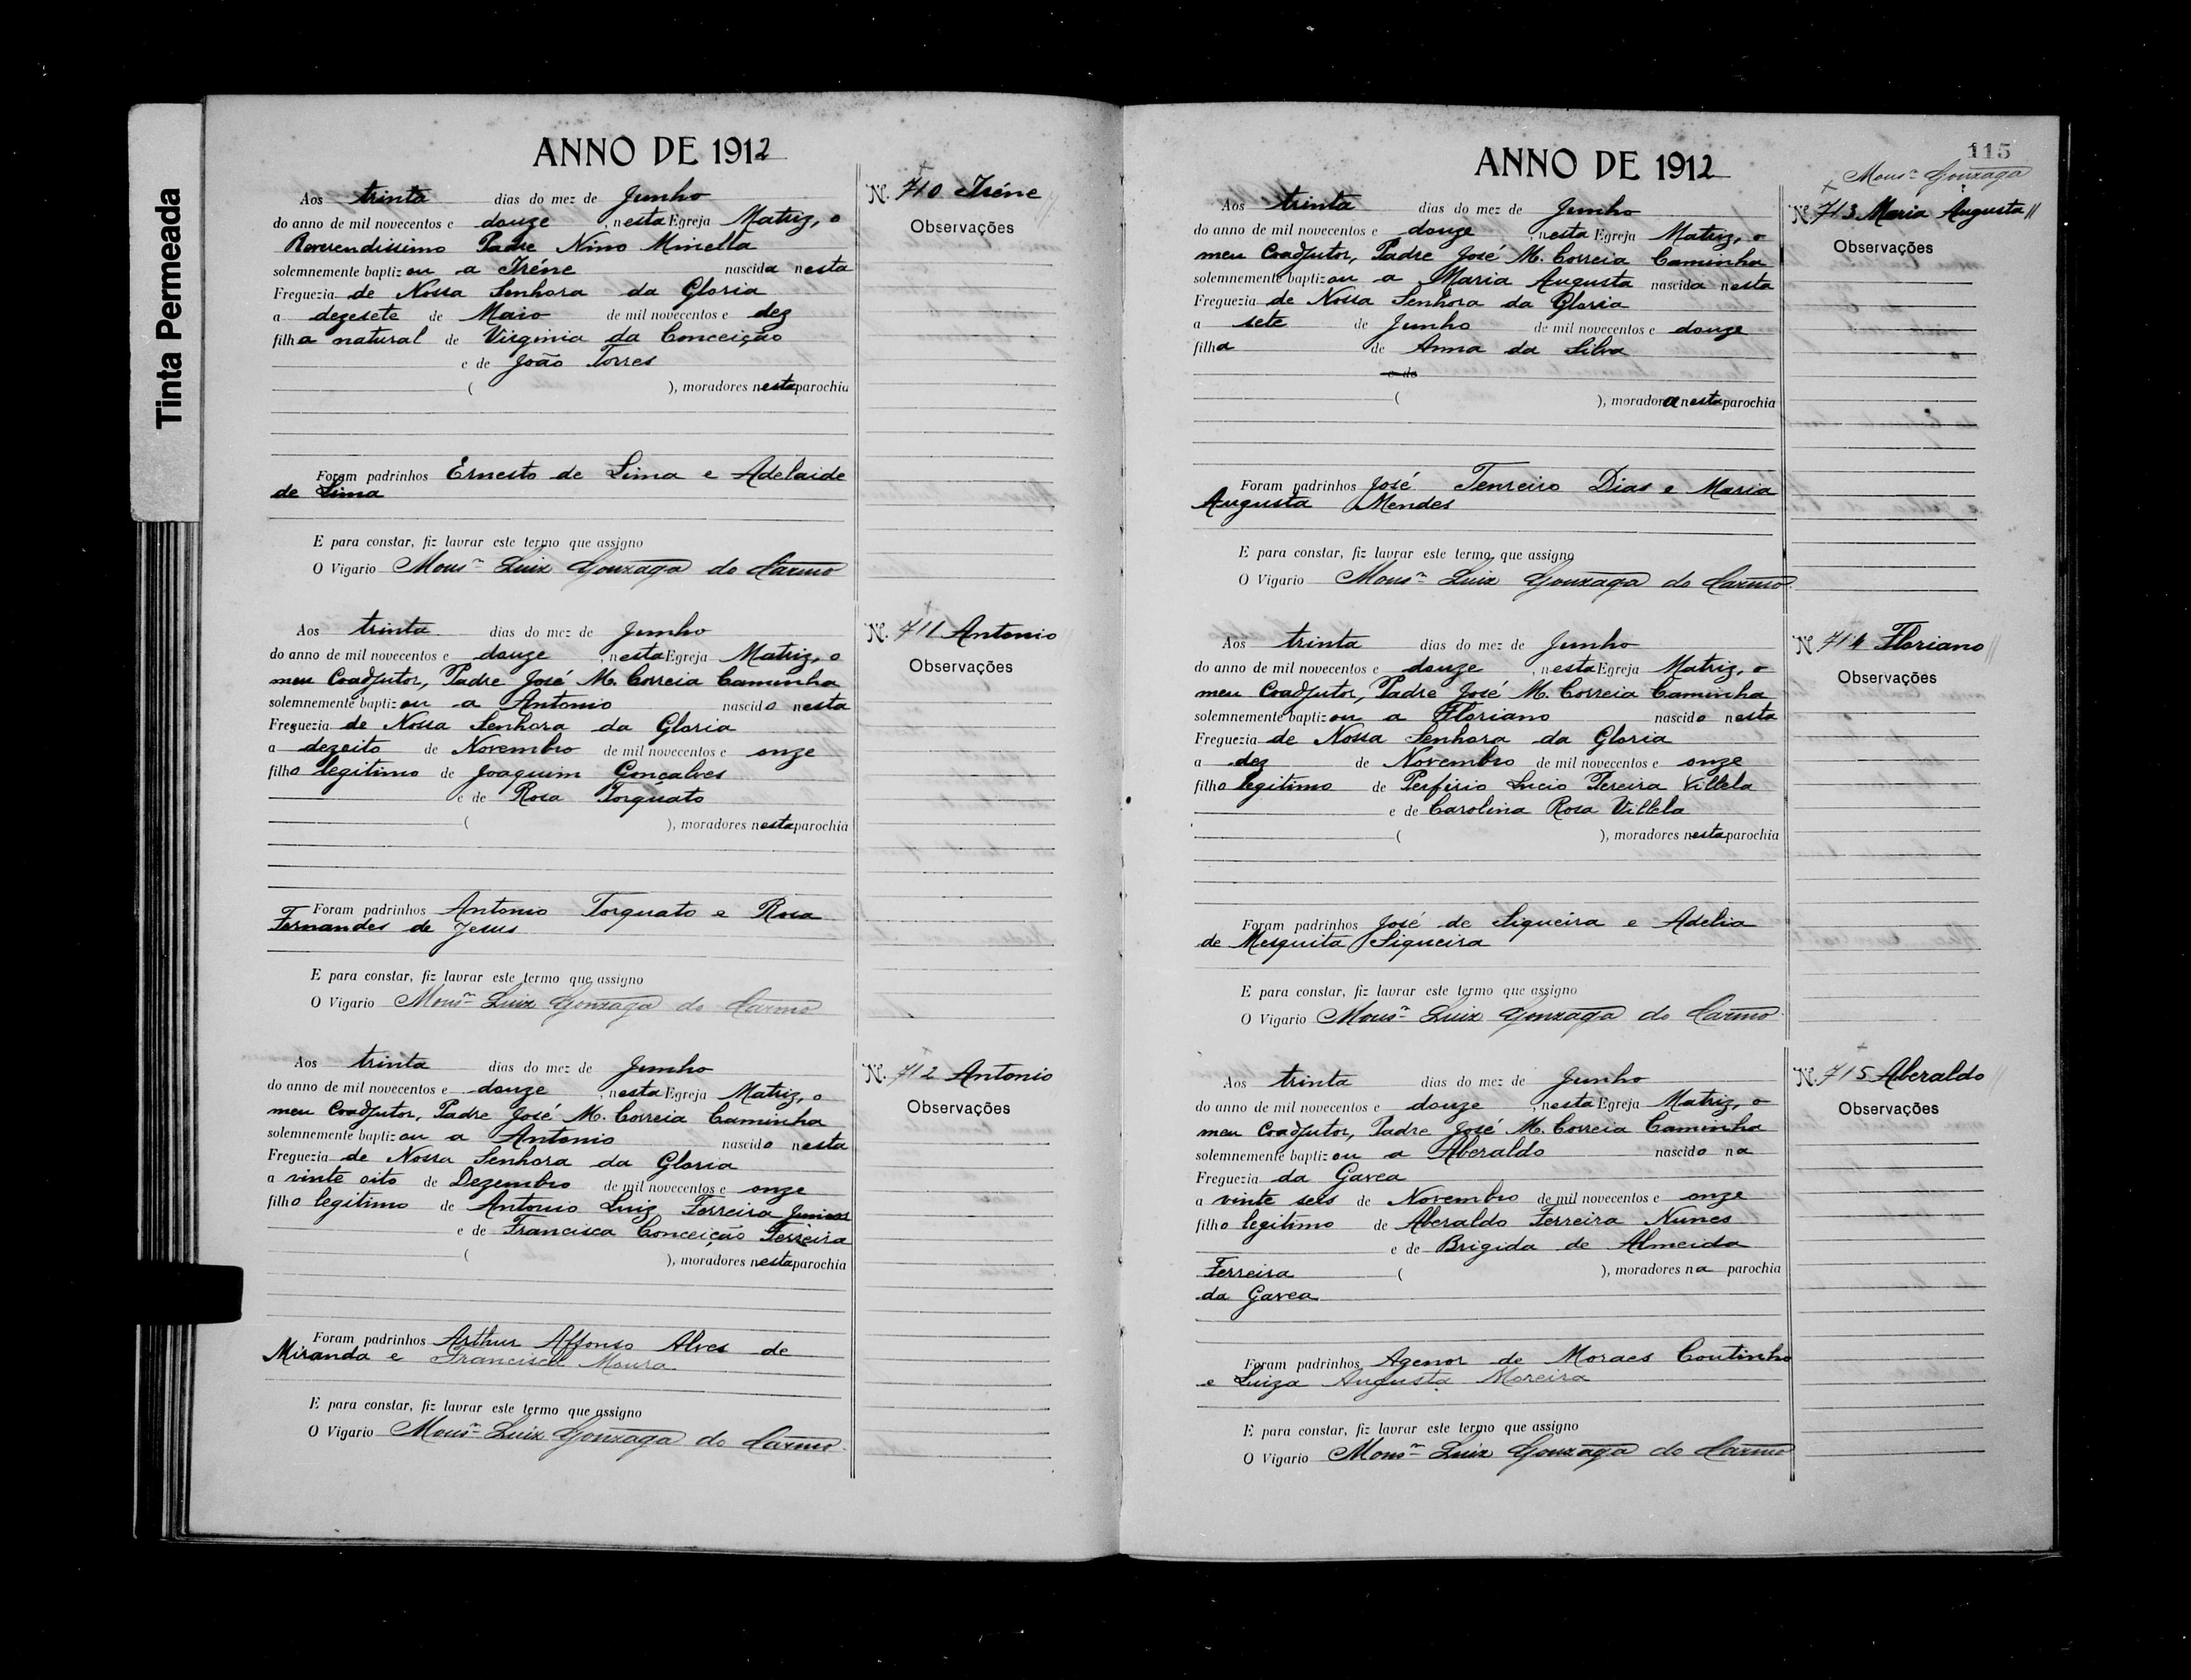 Tinta Permeada
ANNO DE 1912
Aos trinta dias do mez de Junho
do anno de mil novecentos e douze, nesta Egreja Matriz, o
Reverendissimo Padre Nino Minella
solemnemente baptizou a Iréne nascida nesta
Freguezia de Nossa Senhora da Gloria
a dezesete de Maio de mil novecentos e dez
filha natural de Virginia da Conceição
e de João Torres
( ), moradores nesta parochia
Foram padrinhos Ernesto de Lima e Adelaide
de Lima
E para constar, fiz lavrar este termo que assigno
O Vigario Monsr Luiz Gonzaga do Carmo
N. 710 Iréne
Observações
Aos trinta dias do mez de Junho
do anno de mil novecentos e douze, nesta Egreja Matriz, o
meu Coadjutor, Padre José M. Correia Caminha
solemnemente baptizou a Antonio nascido nesta
Freguezia de Nossa Senhora da Gloria
a dezoito de Novembro de mil novecentos e onze
filho legitimo de Joaquim Gonçalves
e de Rosa Torquato
( ), moradores nesta parochia
Foram padrinhos Antonio Torquato e Rosa
Fernandes de Jesus
E para constar, fiz lavrar este termo que assigno
O Vigario Monsr Luiz Gonzaga do Carmo
N. 711 Antonio
Observações
Aos trinta dias do mez de Junho
do anno de mil novecentos e douze, nesta Egreja Matriz, o
meu Coadjutor, Padre José M. Correia Caminha
solemnemente baptizou a Antonio nascido nesta
Freguezia de Nossa Senhora da Gloria
a vinte oito de Dezembro de mil novecentos e onze
filho legitimo de Antonio Luiz Ferreira Junior
e de Francisca Conceição Ferreira
( ), moradores nesta parochia
Foram padrinhos Arthur Affonso Alves de
Miranda e Francisca Moura
E para constar, fiz lavrar este termo que assigno
O Vigario Monsr Luiz Gonzaga do Carmo
N. 712 Antonio
Observações
115
Monsr Gonzaga
ANNO DE 1912
Aos trinta dias do mez de Junho
do anno de mil novecentos e douze, nesta Egreja Matriz, o
meu Coadjutor, Padre José M. Correia Caminha
solemnemente baptizou a Maria Augusta nascida nesta
Freguezia de Nossa Senhora da Gloria
a sete de Junho de mil novecentos e douze
filha de Anna da Silva
e de
( ), moradora nesta parochia
Foram padrinhos José Tenreiro Dias e Maria
Augusta Mendes
E para constar, fiz lavrar este termo que assigno
O Vigario Monsr Luiz Gonzaga do Carmo
N. 713 Maria Augusta
Observações
Aos trinta dias do mez de Junho
do anno de mil novecentos e douze, nesta Egreja Matriz, o
meu Coadjutor, Padre José M. Correia Caminha
solemnemente baptizou a Floriano nascido nesta
Freguezia de Nossa Senhora da Gloria
a dez de Novembro de mil novecentos e onze
filho legitimo de Perfirio Lucio Pereira Villela
e de Carolina Rosa Villela
( ), moradores nesta parochia
Foram padrinhos José de Siqueira e Adelia
de Mesquita Siqueira
E para constar, fiz lavrar este termo que assigno
O Vigario Monsr Luiz Gonzaga do Carmo
N. 714 Floriano
Observações
Aos trinta dias do mez de Junho
do anno de mil novecentos e douze, nesta Egreja Matriz, o
meu Coadjutor, Padre José M. Correia Caminha
solemnemente baptizou a Aberaldo nascido na
Freguezia da Gavea
a vinte seis de Novembro de mil novecentos e onze
filho legitimo de Aberaldo Ferreira Nunes
e de Brigida de Almeida
Ferreira ( ), moradores na parochia
da Gavea
Foram padrinhos Agenor de Moraes Coutinho
e Luiza Augusta Moreira
E para constar, fiz lavrar este termo que assigno
O Vigario Monsr Luiz Gonzaga do Carmo
N. 715 Aberaldo
Observações